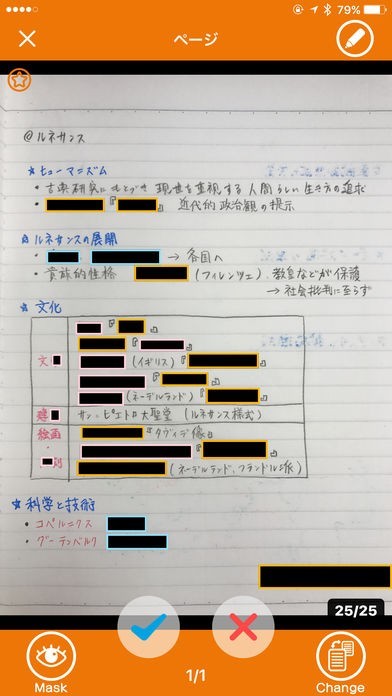 79%
ページ
@ルネサンス
☆ヒューマニズム
・古典研究にもとづき 現世を重視する 人間らしい生き方の追求
『 』 近代的政治観の提示
☆ルネサンスの展開
・ → 各国へ
・貴族的性格 (フィレンツェ)、教皇などが保護
→ 社会批判に至らず
☆ 文化
『 』
『 』
文 (イギリス)『 』
『 』
(ネーデルランド)『 』
建 サン=ピエトロ大聖堂 (ルネサンス様式)
絵画 『ダヴィデ像』
・ 『 』
(ネーデルランド、フランドル派)
☆科学と技術
・コペルニクス
・グーテンベルク
25/25
Mask
1/1
Change